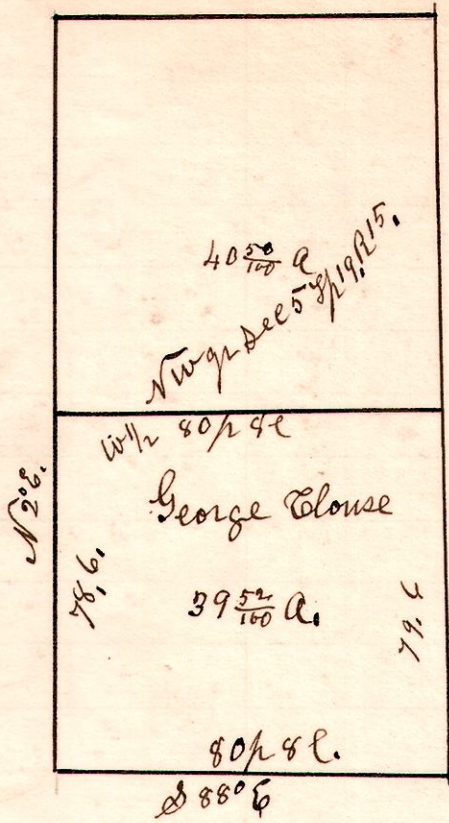 40 50/100 a
N W qr Sec 5 Tp 19. R 15.
W 1/2 80 p 8 l
George Clouse
N 2° E.
78, 6.
39 52/100 A.
79. 6
80 p 8 l.
S 88° E